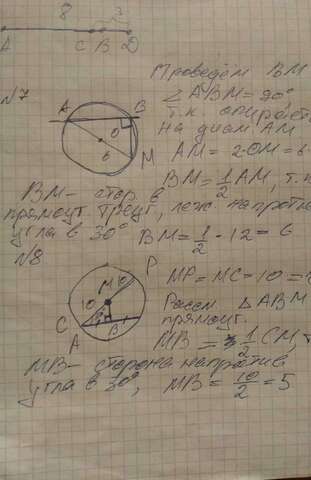 8 3
A C B D
Проведём BM
N7
∠ABM=90°
A B
т.к. опирается
на диам. AM
O
6
M
AM = 2·OM = 6
BM = 1/2 AM, т.к
BM – стор. в
прямоут. треуг, леж напротив
угла в 30°
BM = 1/2 · 12 = 6
N8
P
M
10
C
B
A
MP = MC = 10 =
Рассм. △ABM
прямоуг.
MB = 1/2 CM, т
MB – сторона напротив
угла в 30°, MB = 10/2 = 5